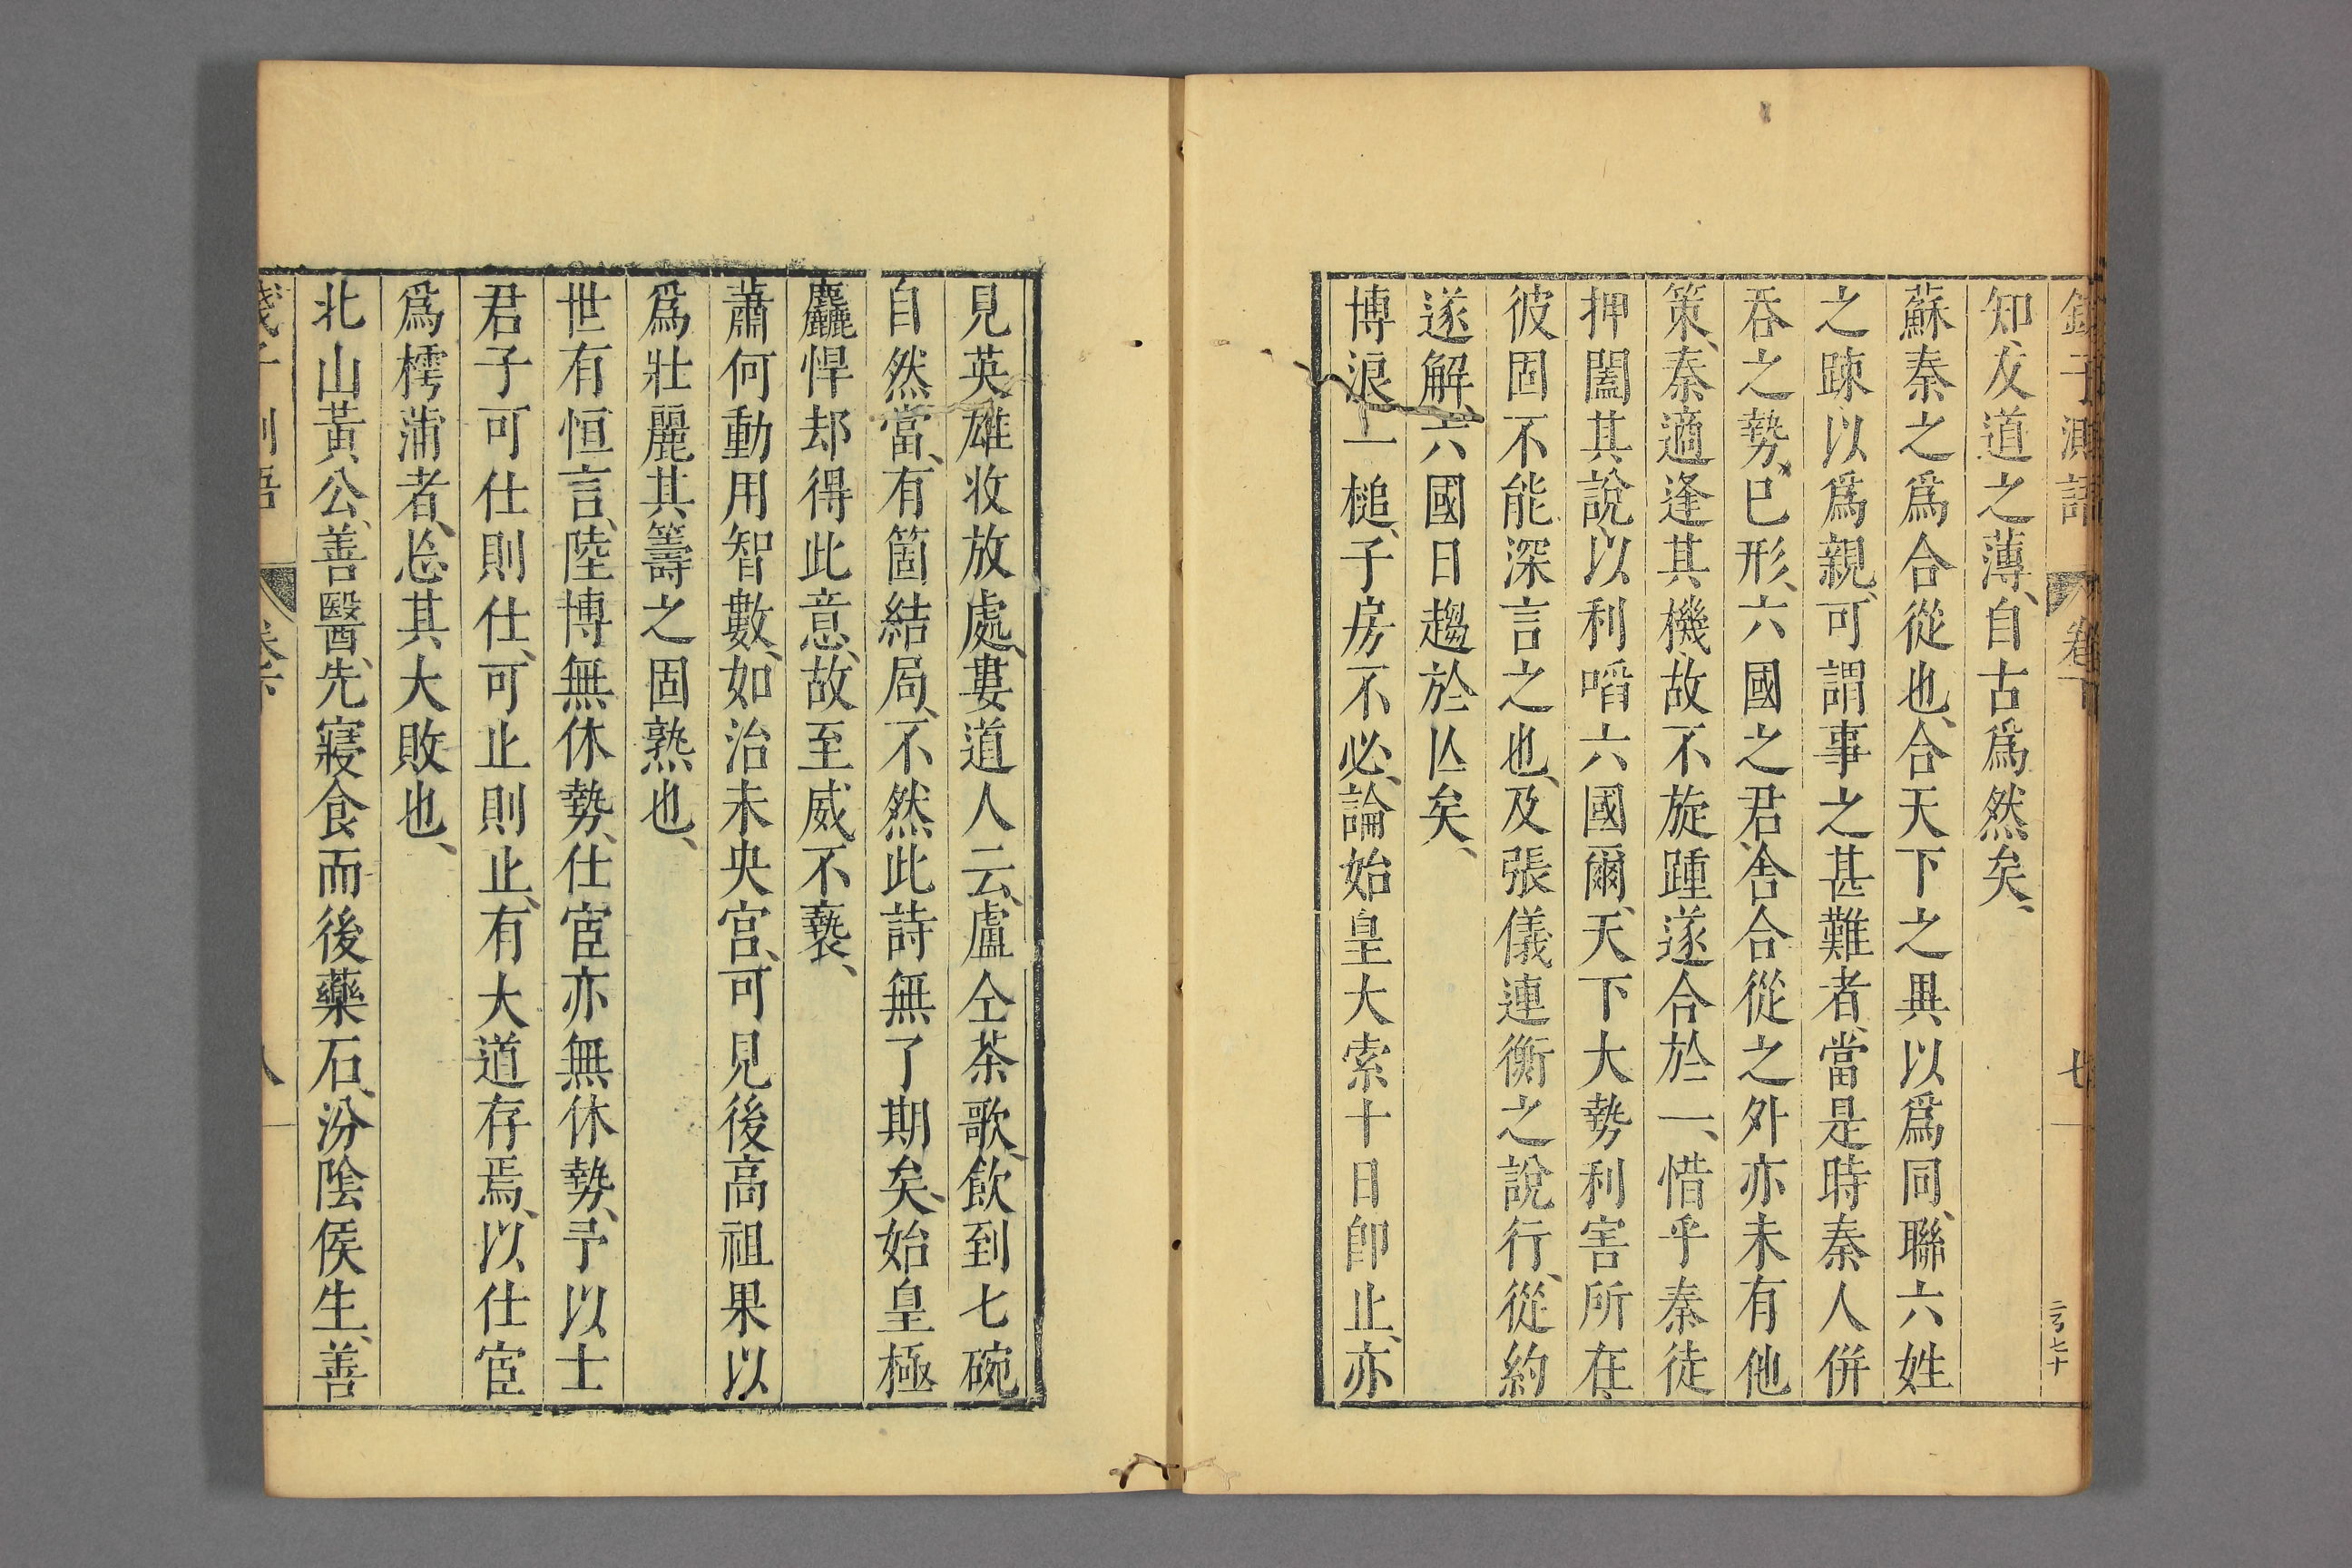 錢子測語 卷下 七
知友道之薄、自古爲然矣、
蘇秦之爲合從也、合天下之異以爲同、聯六姓
之踈以爲親、可謂事之甚難者、當是時秦人併
吞之勢、已形、六國之君、舍合從之外亦未有他
策、秦適逢其機、故不旋踵遂合於一、惜乎秦徒
押闔其說、以利啗六國爾、天下大勢利害所在、
彼固不能深言之也、及張儀連衡之說行、從約
遂解、六國日趨於亾矣、
博浪一槌、子房不必論始皇大索十日卽止、亦
見英雄收放處、婁道人云、盧仝茶歌、飲到七碗
自然當有箇結局、不然此詩無了期矣、始皇極
麤悍却得此意、故至威不褻、
蕭何動用智數、如治未央宮、可見後高祖果以
爲壯麗其籌之固熟也、
世有恒言、陸博無休勢、仕宦亦無休勢、予以士
君子可仕則仕、可止則止、有大道存焉、以仕宦
爲樗蒲者、忩其大敗也、
北山黃公、善醫、先寢食而後藥石、汾陰侯生、善
錢子測語 卷下 八